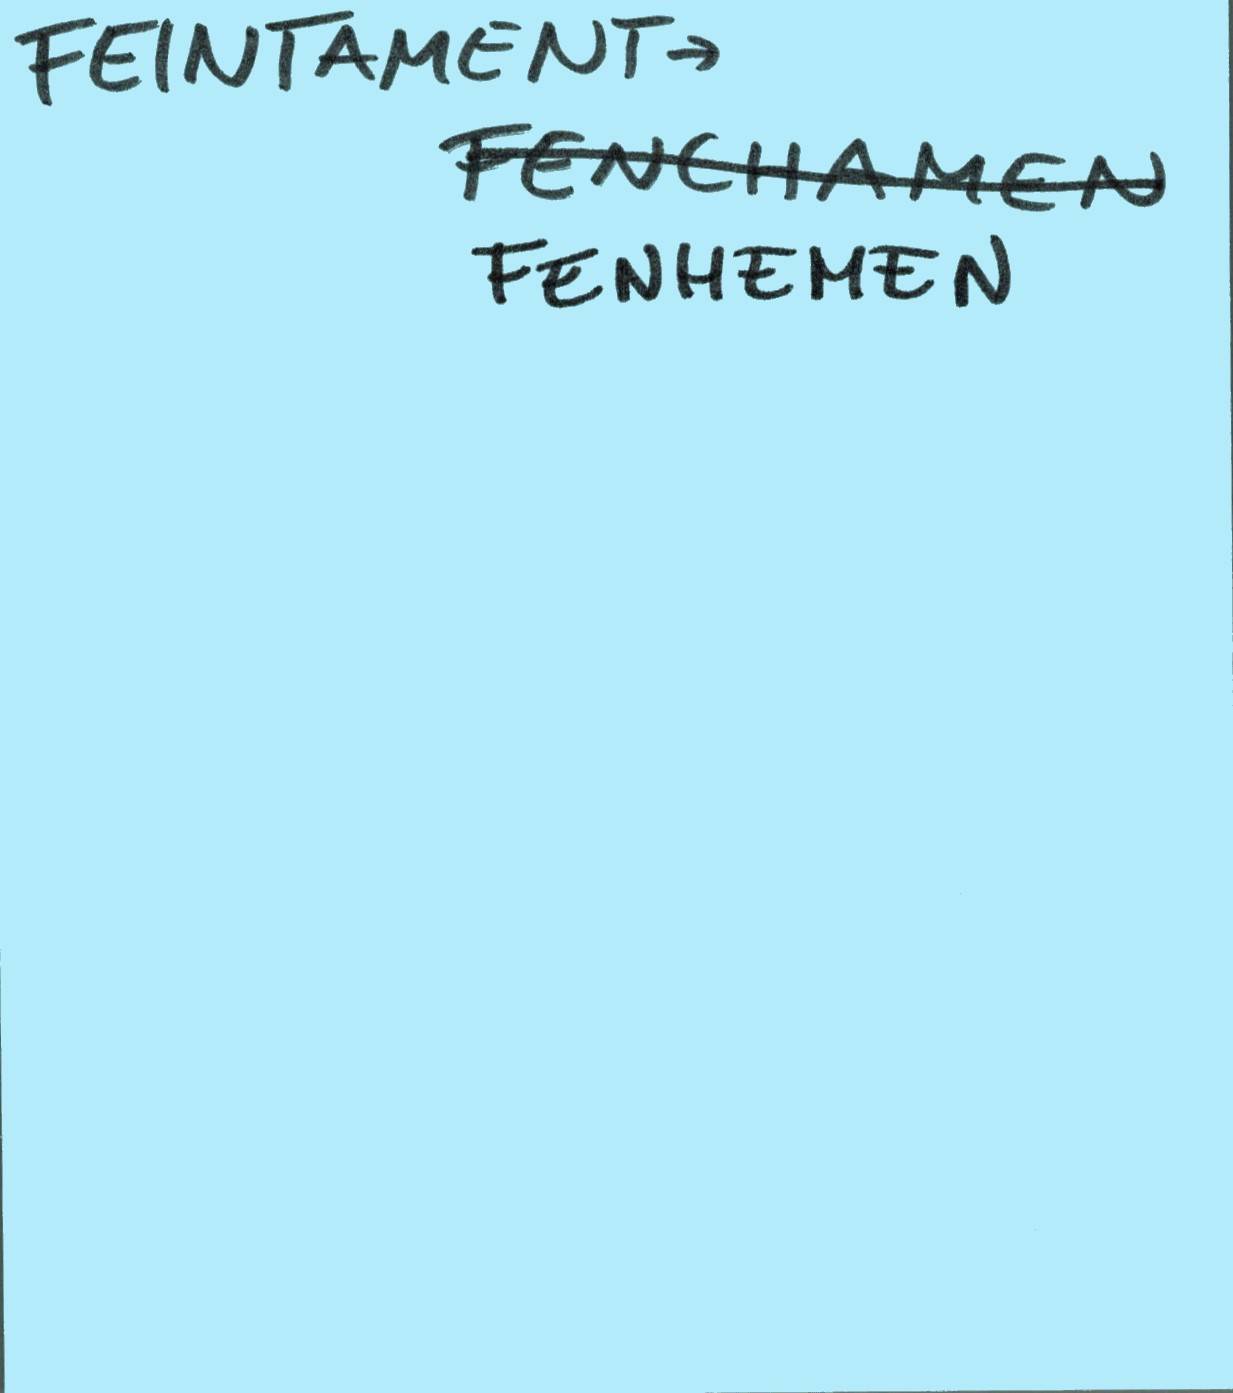 FEINTAMENT→
FENCHAMEN
FENHEMEN